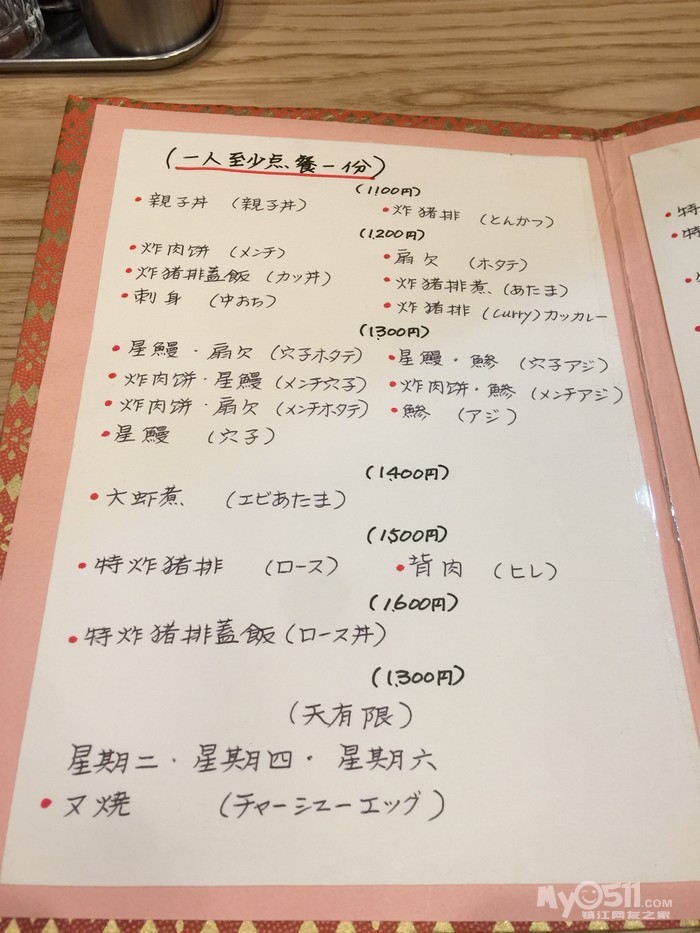 (一人至少点餐一份)
(1,100円)
・親子丼 (親子丼) ・炸猪排 (とんかつ)
(1,200円)
・炸肉饼 (メンチ) ・扇欠 (ホタテ)
・炸猪排蓋飯 (カツ丼) ・炸猪排煮 (あたま)
・刺身 (中おち) ・炸猪排 (Curry)カツカレー
(1,300円)
・星鰻・扇欠 (穴子ホタテ) ・星鰻・鯵 (穴子アジ)
・炸肉饼・星鰻 (メンチ穴子) ・炸肉饼・鯵 (メンチアジ)
・炸肉饼・扇欠 (メンチホタテ) ・鯵 (アジ)
・星鰻 (穴子)
(1,400円)
・大虾煮 (エビあたま)
(1,500円)
・特炸猪排 (ロース) ・背肉 (ヒレ)
(1,600円)
・特炸猪排蓋飯 (ロース丼)
(1,300円)
(天有限)
星期二・星期四・星期六
・叉焼 (チャーシューエッグ)
特
特
My0511.COM
镇江网友之家